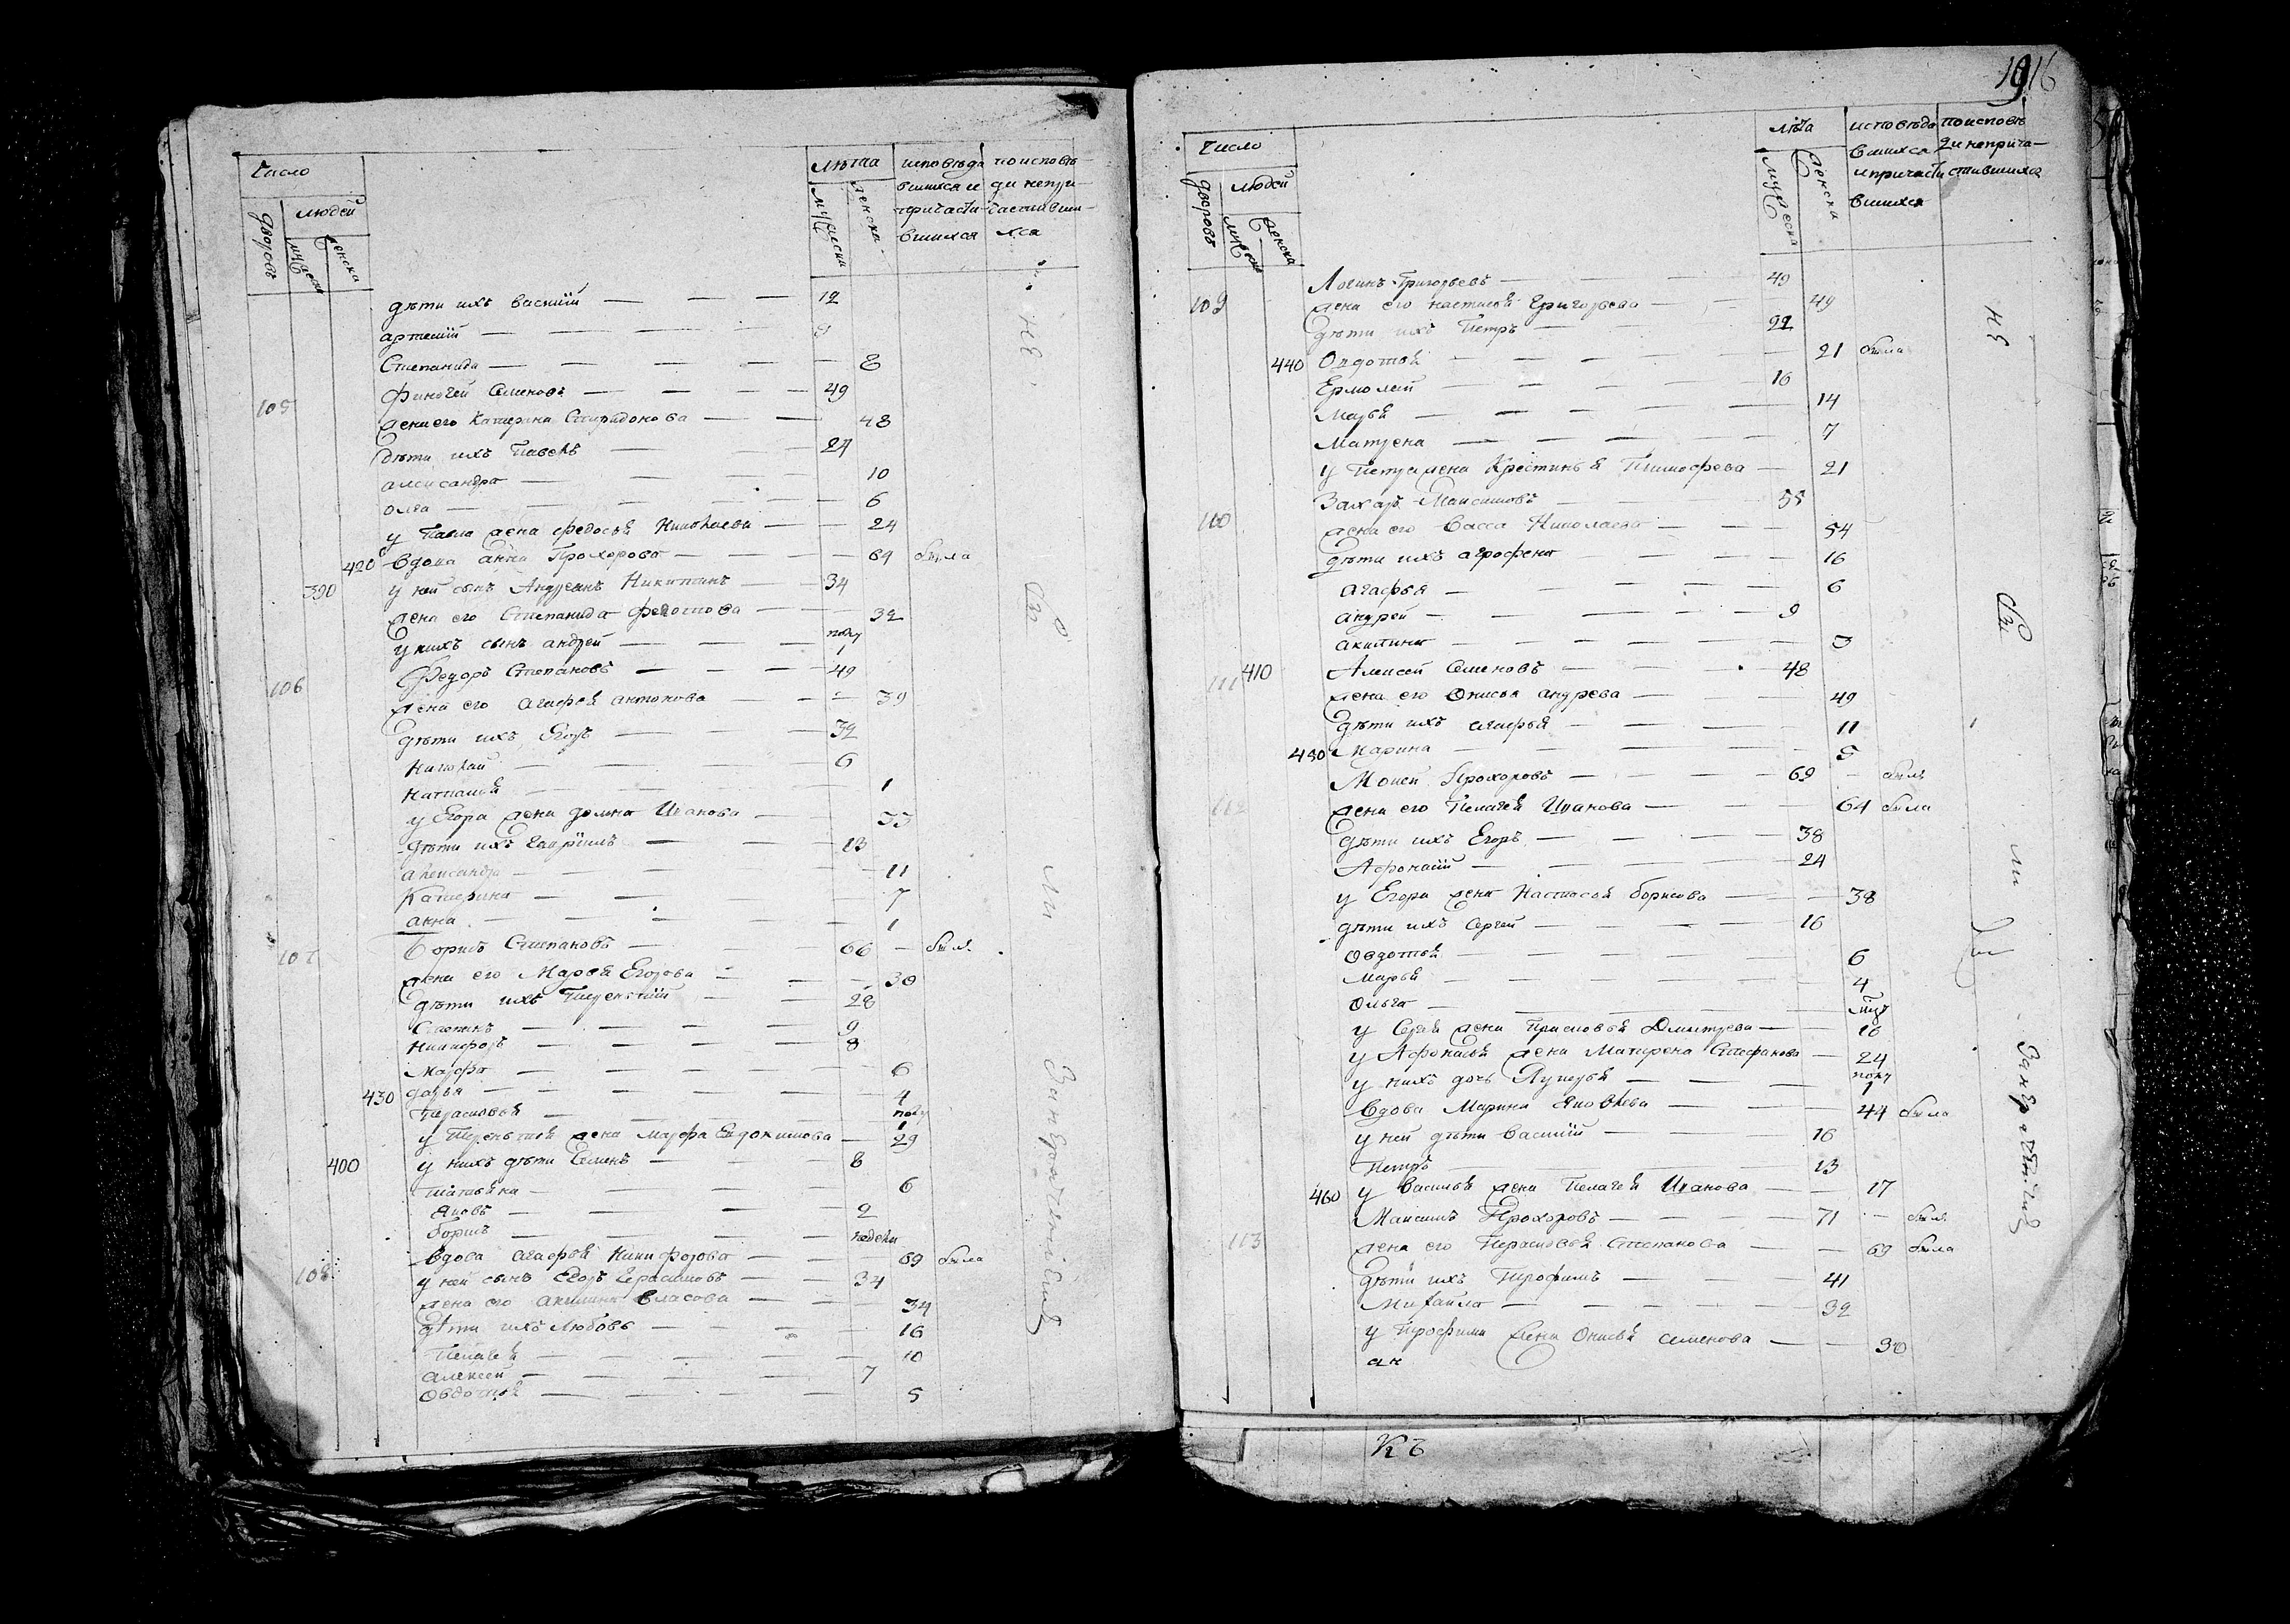 Число
людей
дворовъ
мужеска
женска
лѣта
мужеска
женска
исповѣда
вшихся и
причасти-
вшихся
по исповѣ
ди непри-
частивши-
хся
дѣти ихъ василїй 12
артемїй
Степанида 8
105 Финогей Семеновъ 49
жена его Катерина Спиридонова 48
дѣти ихъ Павелъ 24
александра 10
олга 6
у Павла жена федосья Николаева 24
420 вдова анна Прохорова 64 была
390 у ней сынъ Андреянъ Никитинъ 34
жена его Степанида федотова 32
у нихъ сынъ андрей полу 1
106 Федоръ Степановъ 49
жена его агафья антонова 39
дѣти ихъ Егоръ 32
Николай 6
Наталья 1
у Егора жена домна Иванова 33
дѣти ихъ Гаврїилъ 13
александра 11
Катерина 7
анна 1
107 Борисъ Степановъ 66 былъ
жена его Марья Егорова 30
дѣти ихъ Терентїй 28
9
Никифоръ 8
Марфа 6
430 дарья 4
Парасковья полу 1
у Терентья жена марфа Евдокимова 29
400 у нихъ дѣти Семенъ 8
татьяна 6
яковъ 2
борисъ недели
108 вдова агафья Никифорова 69 была
у ней сынъ Егоръ Герасимовъ 34
жена его акилина власова 34
дѣти ихъ любовь 16
Пелагея 10
алексей 7
овдотья 5
не
бы
ли
За нерачениемъ
1916
Число
людей
дворовъ
мужеска
женска
лѣта
мужеска
женска
исповѣда
вшихся
и причасти
вшихся
по исповѣ
ди неприча-
стившихся
Логинъ Григорьевъ 49
109 жена его настасья Григорьева 49
дѣти ихъ Петръ 22
440 Овдотья 21 была
Ермолай 16
Марья 14
Матрена 7
у Петра жена Крестинья Тимофеева 21
Захаръ Максимовъ 55
110 жена его Васса Николаева 54
дѣти ихъ агрофена 16
агафья 6
андрей 9
акилина 3
111 410 Алексей Семеновъ 48
жена его Онисья андреева 49
дѣти ихъ агафья 11
450 Марина 5
Моисей Прохоровъ 69 былъ
112 жена его Пелагея Иванова 64 была
дѣти ихъ Егоръ 38
Афонасїй 24
у Егора жена Настасья борисова 38
дѣти ихъ Сергей 16
Овдотья 6
марья 4
Ольга
у Сергея жена Прасковья Дмитрева 16
у Афонасья жена Матрена Стефанова 24
у нихъ дочь Лукерья полу 1
вдова Марина Яковлева 44 была
у ней дѣти василїй 16
Петръ 13
460 у Василья жена Пелагея Иванова 17
Максимъ Прохоровъ 71 былъ
113 жена его Парасковья Степанова 69 была
дѣти ихъ Трофимъ 41
Михайла 32
у Трофима жена Онисья семенова 30
ан
не
бы
ли
За нерачениемъ